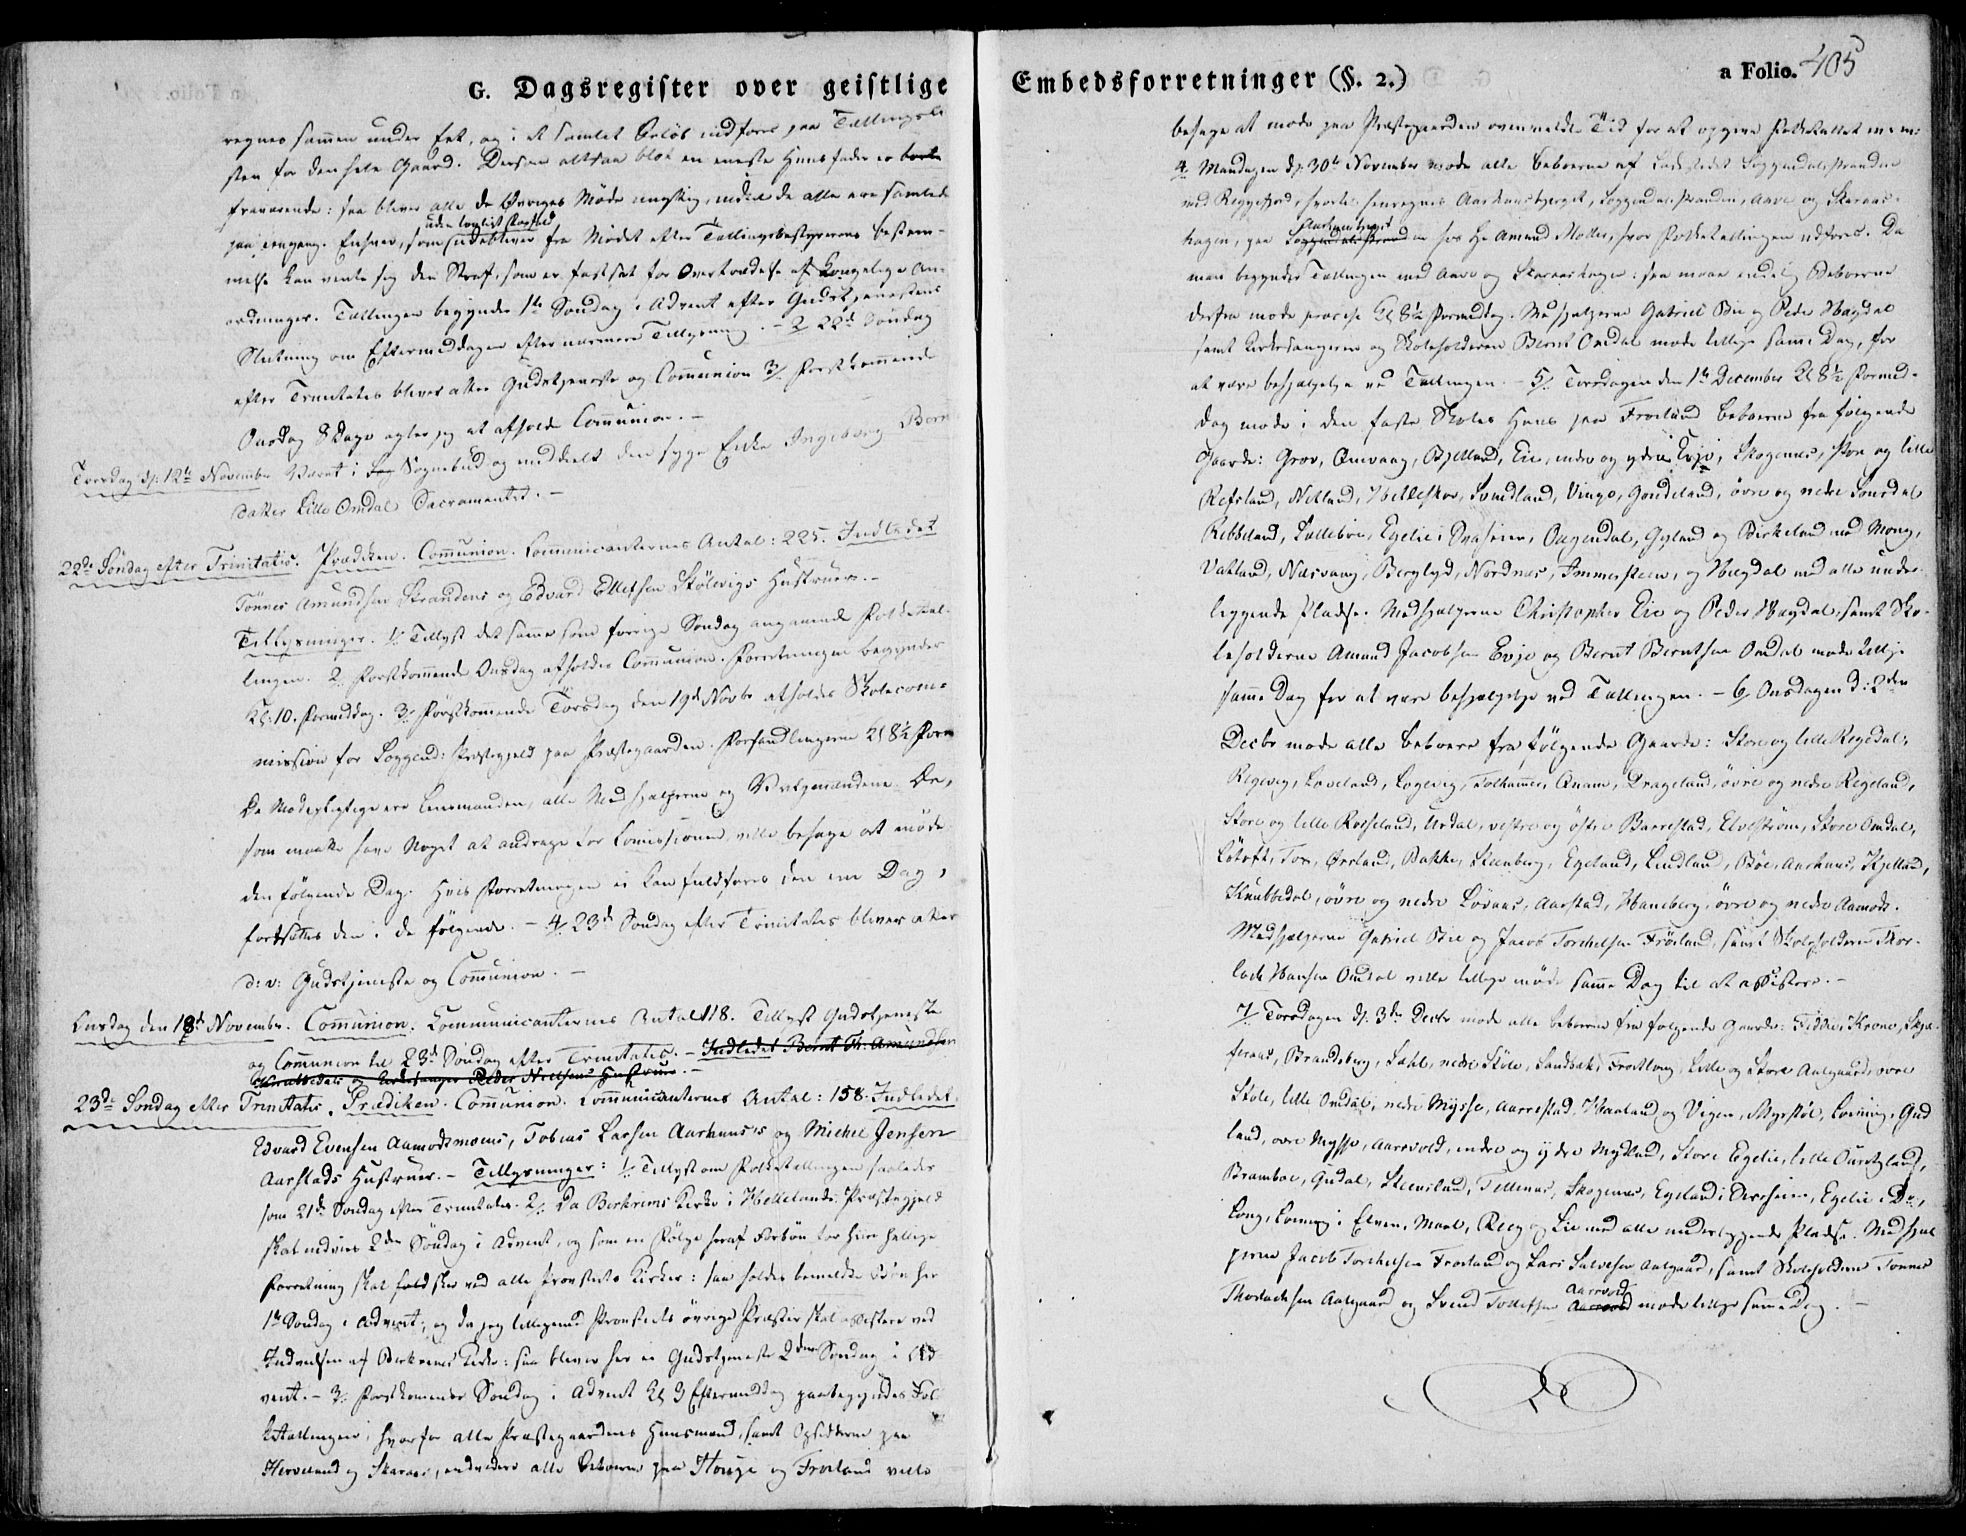 G. Dagsregister over geistlige
regnes sammen under Eet, og i et samlet Beløb indføres paa Tællingsli
sten for den hele Gaard. Dersom altsaa blot en eneste Huusfader er borte
fraværende: saa bliver alle de Øvriges Møde unyttig, indtil de alle ere samlede
uden lovligt Forfald
paa eengang. Enhver, som udebliver fra Mødet efter Tællingsbestyrerens bestem-
melse kan vente sig den Straf, som er fastsat for Overtrædelse af kongelige An-
ordninger. Tællingen begynder 1te Søndag i Advent efter Gudstjenestens
Slutning om Eftermiddagen efter nærmere Tillysning. - 2 22de Søndag
efter Trinitatis bliver atter Gudstjeneste og Communion 3/ Førstkommende
Onsdag 8 Dage agter jeg at afholde Communion. -
Torsdag d: 12te November Været i Sognebud og meddeelt den syge Enke Ingeborg Bern
datter Lille Omdal Sacramentet. -
22de Søndag efter Trinitatis. Prædiken. Communion. Communicanternes Antal: 225. Indledet
Tønnes Amundsen Strandens og Edvard Ellefsen Skölevigs Hustruer. -
Tillysninger. 1/ Tillyst det samme som forrige Søndag angaaende Folketæl-
lingen. 2. Førstkommende Onsdag afholdes Communion. Forretningen begynder
Kl: 10. Formiddag. 3/ Førstkommende Torsdag den 19de Novbr afholdes Skolecom-
mission for Soggend: Præstegjeld paa Præstegaarden. Forhandlingerne Kl 8½ Form
De Mødepligtige ere Lensmanden, alle Medhjælperne og Valgmændene. De,
som maatte have Noget at andrage for Comissionen ville behage at møde
den følgende Dag. Hvis Forretningen ei kan fuldføres den ene Dag,
fortsættes den i de følgende. - 4/ 23de Søndag efter Trinitatis bliver atter
d: v: Gudstjeneste og Communion. -
Onsdag den 18de November. Communion. Communicanternes Antal 118. Tillyst Gudstjeneste
og Communion til 23de Søndag efter Trinitatis. - Indledet Bernt Th: Amundsen
Knubbedals og Kirkesanger Peder Nielsens Hustruer. -
23de Søndag efter Trinitatis. Prædiken. Communion. Communicanternes Antal: 158. Indledet
Edvard Evensen Aamodsmoens, Tobias Larsen Aarhuus's og Michel Jensen
Aarstads Hustruer. - Tillysninger: 1/ Tillyst om Folketællingen saaledes
som 21de Søndag efter Trinitatis. 2/. Da Birkrems Kirke i Hellelands Præstegjeld
skal indvies 2den Søndag i Advent, og som en Følge heraf Forbøn for hiin hellige
Forretning skal holdes ved alle Provstiets Kirker: saa holdes bemeldte Bøn her
1te Søndag i Advent; og da jeg tilligemed Provstiets øvrige Præster skal assistere ved
Indvielsen af Birkrems Kirke: saa bliver her ei Gudstjeneste 2den Søndag i Ad
vent. - 3/. Førstkommende Søndag i Advent Kl 3 Eftermiddag paabegyndes Fol
ketællingen, hvorfor alle Præstegaardens Huusmænd, samt Opsidderne paa
Herveland og Skaraas, endvidere alle Beboerne paa Hauge og Frøiland ville
Embedsforretninger (§. 2.)
a Folio. 405
behage at møde paa Præstegaarden ovenmeldte Tid for at opgive Folketallet m: m:
4. Mandagen d: 30te November møde alle Beboerne af Ladestedet Soggendalsstranden
ved Reggefjord, hvortil henregnes Aarhuusbjerget, Soggendalsstranden, Aave og Skaraas-
hagen, paa Soggendalsstranden hos Hr Amund Møller, hvor Folketællingen udføres. Da
man begynder Tællingen med Aave og Skaraashagen: saa maae endelig Beboerne
derfra møde præcise Kl 8½ Formiddag. Medhjælperne Gabriel Bie og Peder Hagdal
samt Kirkesangeren og Skoleholderen Bernt Omdal møde tillige samme Dag, for
at være behjælpelige ved Tællingen. - 5/. Tirsdagen den 1te December Kl 8½ Formid-
dag møde i den faste Skoles Huus paa Frøiland Beboerne fra følgende
Gaarde: Grøv, Omvaag, Bjelland, Eie, indre og ydre Evje, Skogenes, store og lille
Refsland, Netland, Helleskov, Svindland, Vinge, Gondeland, øvre og nedre Sørsdal
Ribbeland, Sællebøe, Egelie i Draheien, Oagendal, Gyland og Birkeland med Mong,
Vatland, Næsvaag, Berglyd, Nordnæs, Immersteen, og Hægdal med alle under-
liggende Pladse. Medhjælperne Christopher Eie og Peder Hagdal, samt Sko-
leholderne Amund Jacobsen Evje og Bernt Berntsen Omdal møde tillige
samme Dag for at være behjælpelige ved Tællingen. - 6. Onsdagen d: 2den
Decbr møde alle Beboere fra følgende Gaarde: Store og lille Regedal,
Regevig, Løveland, Logevig, Tolhammer, Qvam, Drageland, øvre og nedre Regeland,
Store og lille Rosseland, Urdal, vestre og østre Barrestad, Elvestrøm, Store Omdal,
Løtoft, Tov, Ørsland, Bakke, Steenberg, Egeland, Lindland, Bøe, Aarhuus, Kjelland,
Knubbedal, øvre og nedre Løvaas, Aarstad, Haneberg, øvre og nedre Aamodt.
Medhjælperne Gabriel Bie og Jacob Torkelsen Frøiland, samt Skoleholderen Thor-
lach Hansen Omdal ville tillige møde samme Dag til at assistere. -
7/ Torsdagen d: 3die Decbr møde alle Beboerne fra følgende Gaarde: Fidde, Krone, Skja-
feraas, Brandsberg, Dahl, nedre Skole, Sandbak, Frøitlog, Lille og Store Aalgaard, øvre
Skole, lille Omdal, nedre Mysse, Aarrestad, Haaland og Vigen, Myrstøl, Løvning, Gud
land, øvre Mysse, Aarsvold, indre og ydre Mydland, Store Egelie, lille Ourdgland,
Bramboe, Gudal, Steensland, Tellenæs, Skogenes, Egeland i Dræheien, Egelie i Do,
Long, Løvning i Elven, Moel, Reeg og Lie med alle underliggende Pladse. Medhjæl
perne Jacob Torkelsen Frøiland og Lars Salvesen Aalgaard, samt Skoleholderne Tønnes
Aarsvold
Thorlachsen Aalgaard og Svend Tollefsen møde tillige samme Dag. -